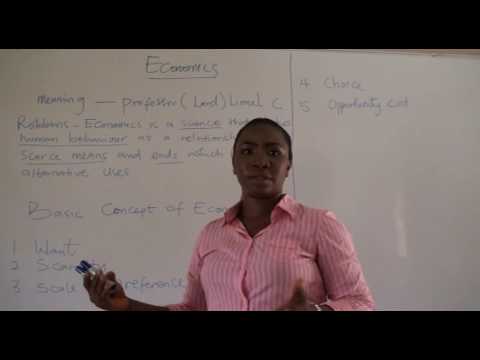 Economics
meaning — Professor (Lord) Lionel C
Robbins - Economics is a science that
human behaviour as a relationship
Scarce means and ends which
alternative uses
Basic Concept of Econ
1 Want
2 Scar
3 Scale reference
4 Choice
5 Opportunity Cost